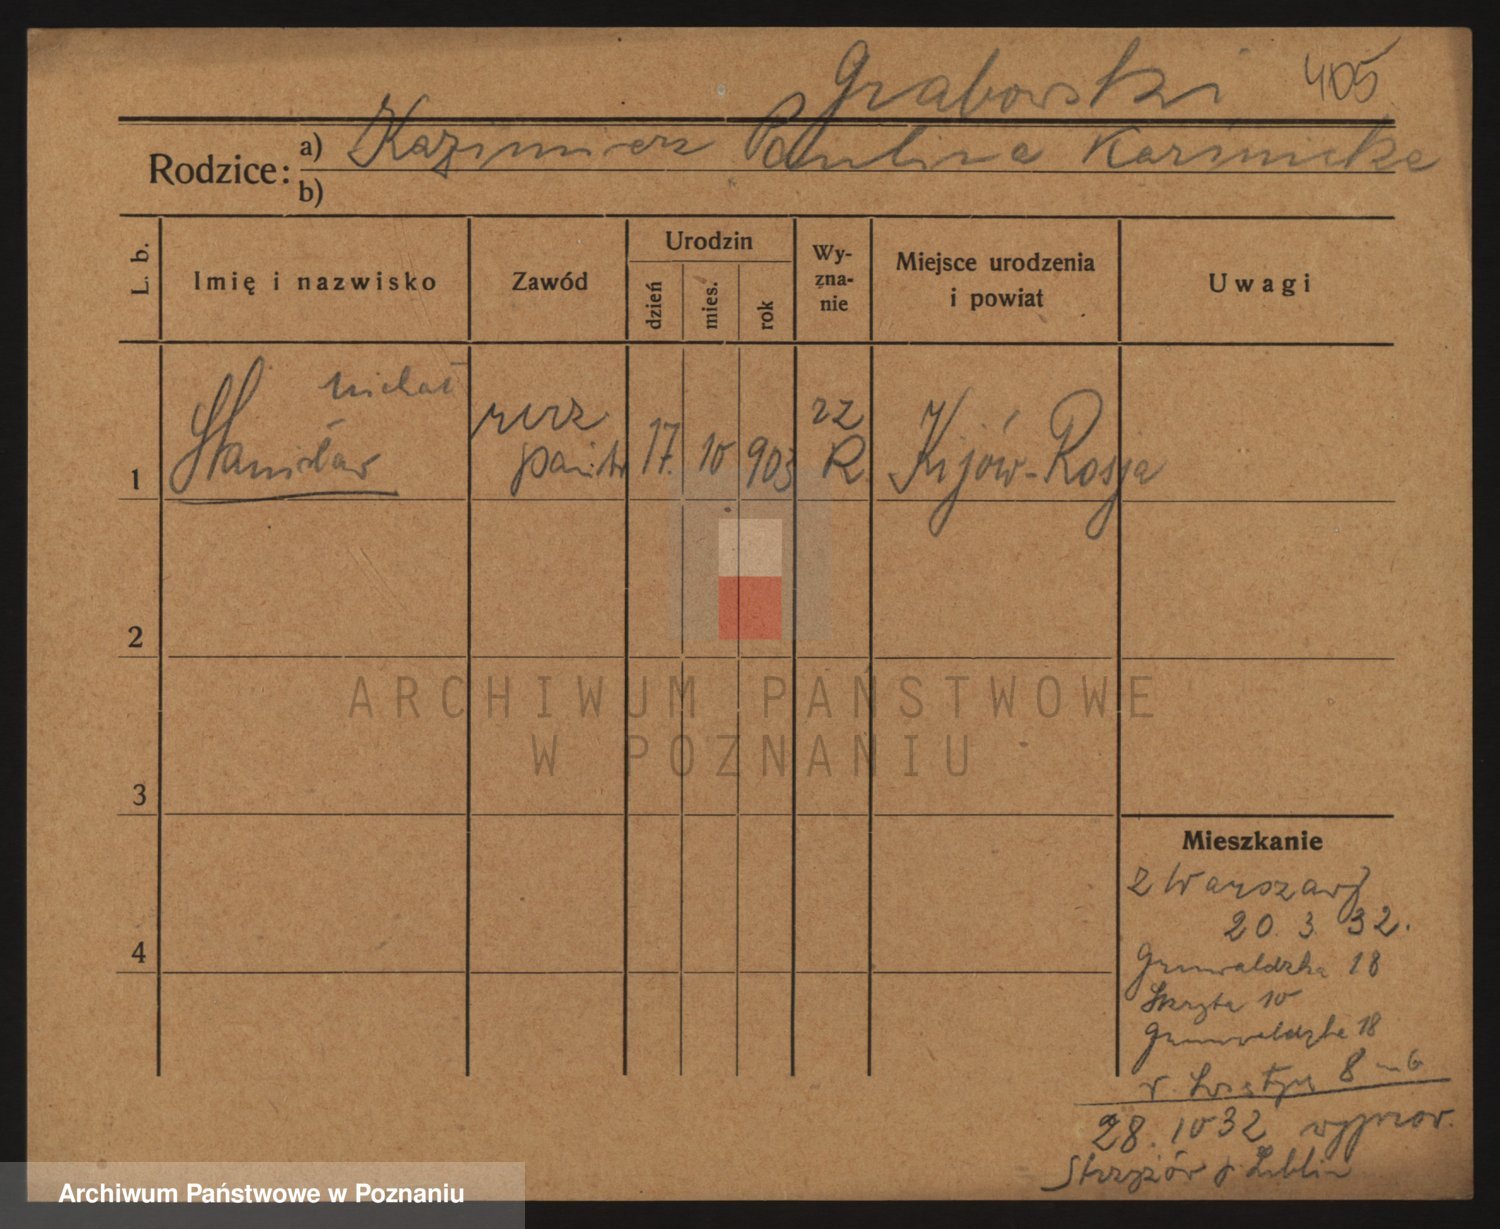 Grabowski 405
Rodzice: a) Kazimierz Paulina
b)
L. b.
Imię i nazwisko
Zawód
Urodzin
dzień
mies.
rok
Wy-
zna-
nie
Miejsce urodzenia
i powiat
Uwagi
Michał
1 Stanisław
17. 10 903
rz
K
Kijów-Rosja
2
3
4
ARCHIWUM PAŃSTWOWE
W POZNANIU
Mieszkanie
z Warszawy
20. 3. 32.
Grunwaldzka 18
Skryta 10
Grunwaldzka 18
8 m 6
28. 10 32 wyprow.
Lublin
Archiwum Państwowe w Poznaniu